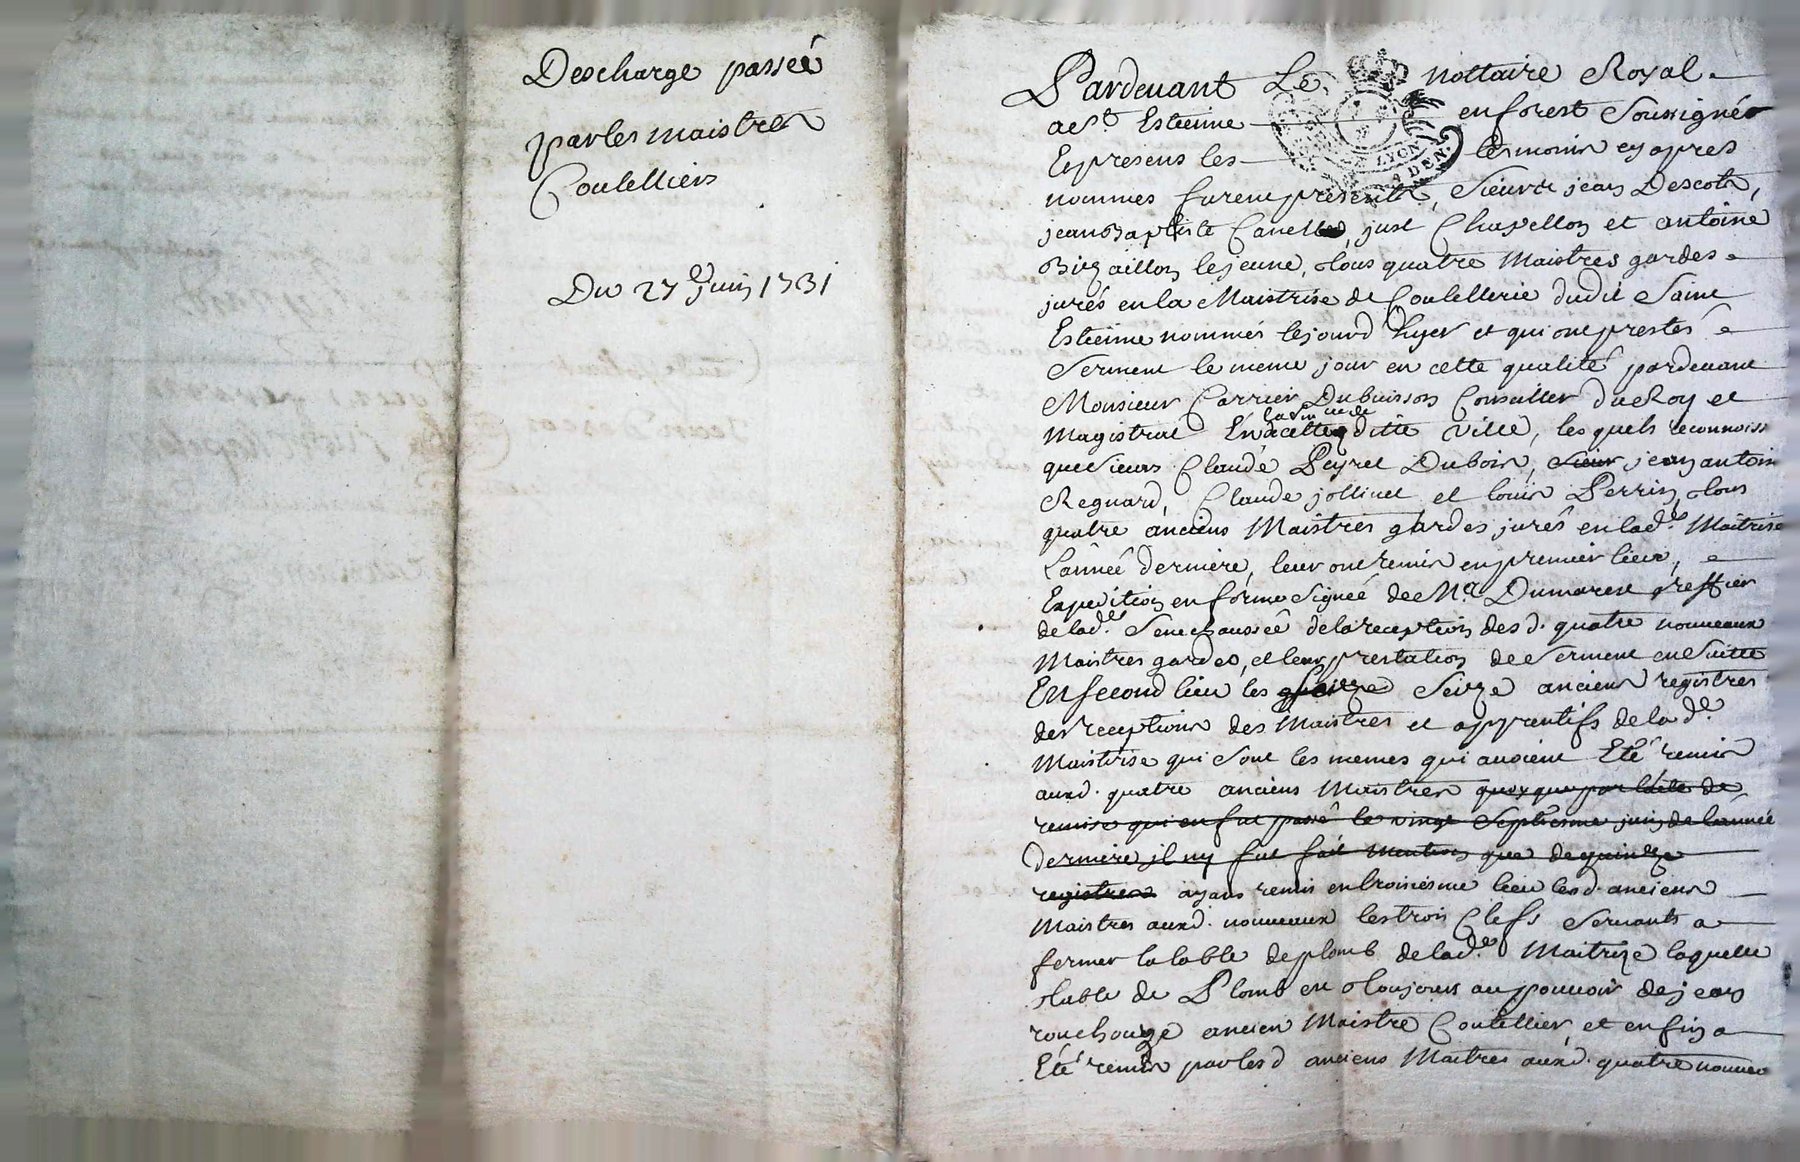 Descharge passeé
par les maistres
Coutelliers
Du 27e Juin 1731
Pardevant Le nottaire Royal
a St. Estienne en forest Soussigné
Et presens les tesmoins cy apres
nommés furent presents, Sieurs jean Descots,
jean Baptiste Canel, just Chapellon et antoine
Bizaillon le jeune, tous quatre Maistres gardes
jurés en la Maistrise de Coutellerie dudit Saint
Estienne nommés le jourd'hyer et qui ont prestés
Serment le meme jour en cette qualité pardevant
Monsieur Carrier Dubuisson Conseiller du Roy et
Magistrat En cette ditte ville, les quels reconnoiss
que Sieurs Claude Peyret Dubois, Sieur jean antoin
Regnard, Claude jollivet et louis Perrin, tous
quatre anciens Maistres gardes jurés en lad.e Maitrise
L'année derniere, leur ont remis en premier lieu,
Expedition en forme Signeé de Me. Dumarest greffier
de lad.e Seneschausseé de la reception des d. quatre nouveaux
Maistres gardes, et leur prestation de Serment en Suitte
En second lieu les Seize anciens registres
des receptions des Maistres et apprentifs de lad.e
Maistrise qui Sont les memes qui avoient Eté remis
auxd. quatre anciens Maistres quoyque par l'acte de
remise qui en fut passé le vingt Septiesme juin de l'année
derniere il ny fut fait mention que de quinze
registres ayans remis en troisiesme lieu lesd. anciens
Maistres auxd. nouveaux les trois Clefs Servants a
fermer la table de plomb de lad.e Maitrize laquelle
table de Plomb est toujours au pouvoir de jean
rouchouze ancien Maistre Coutellier et enfin a
Eté remis par lesd anciens Maitres auxd. quatre nouve